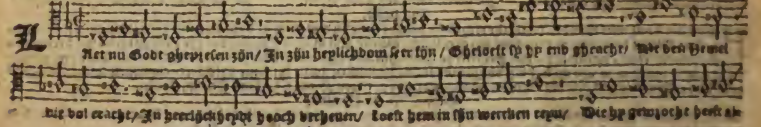 LAet nu Godt ghepresen zijn / In zijn heylichdom seer fijn / Gheloeft sy hy end gheacht / Wt den Hemel
die vol cracht / In heerlijckheydt hooch verheven / Loeft hem in sijn wercken reyn / Die hy gewrocht heeft